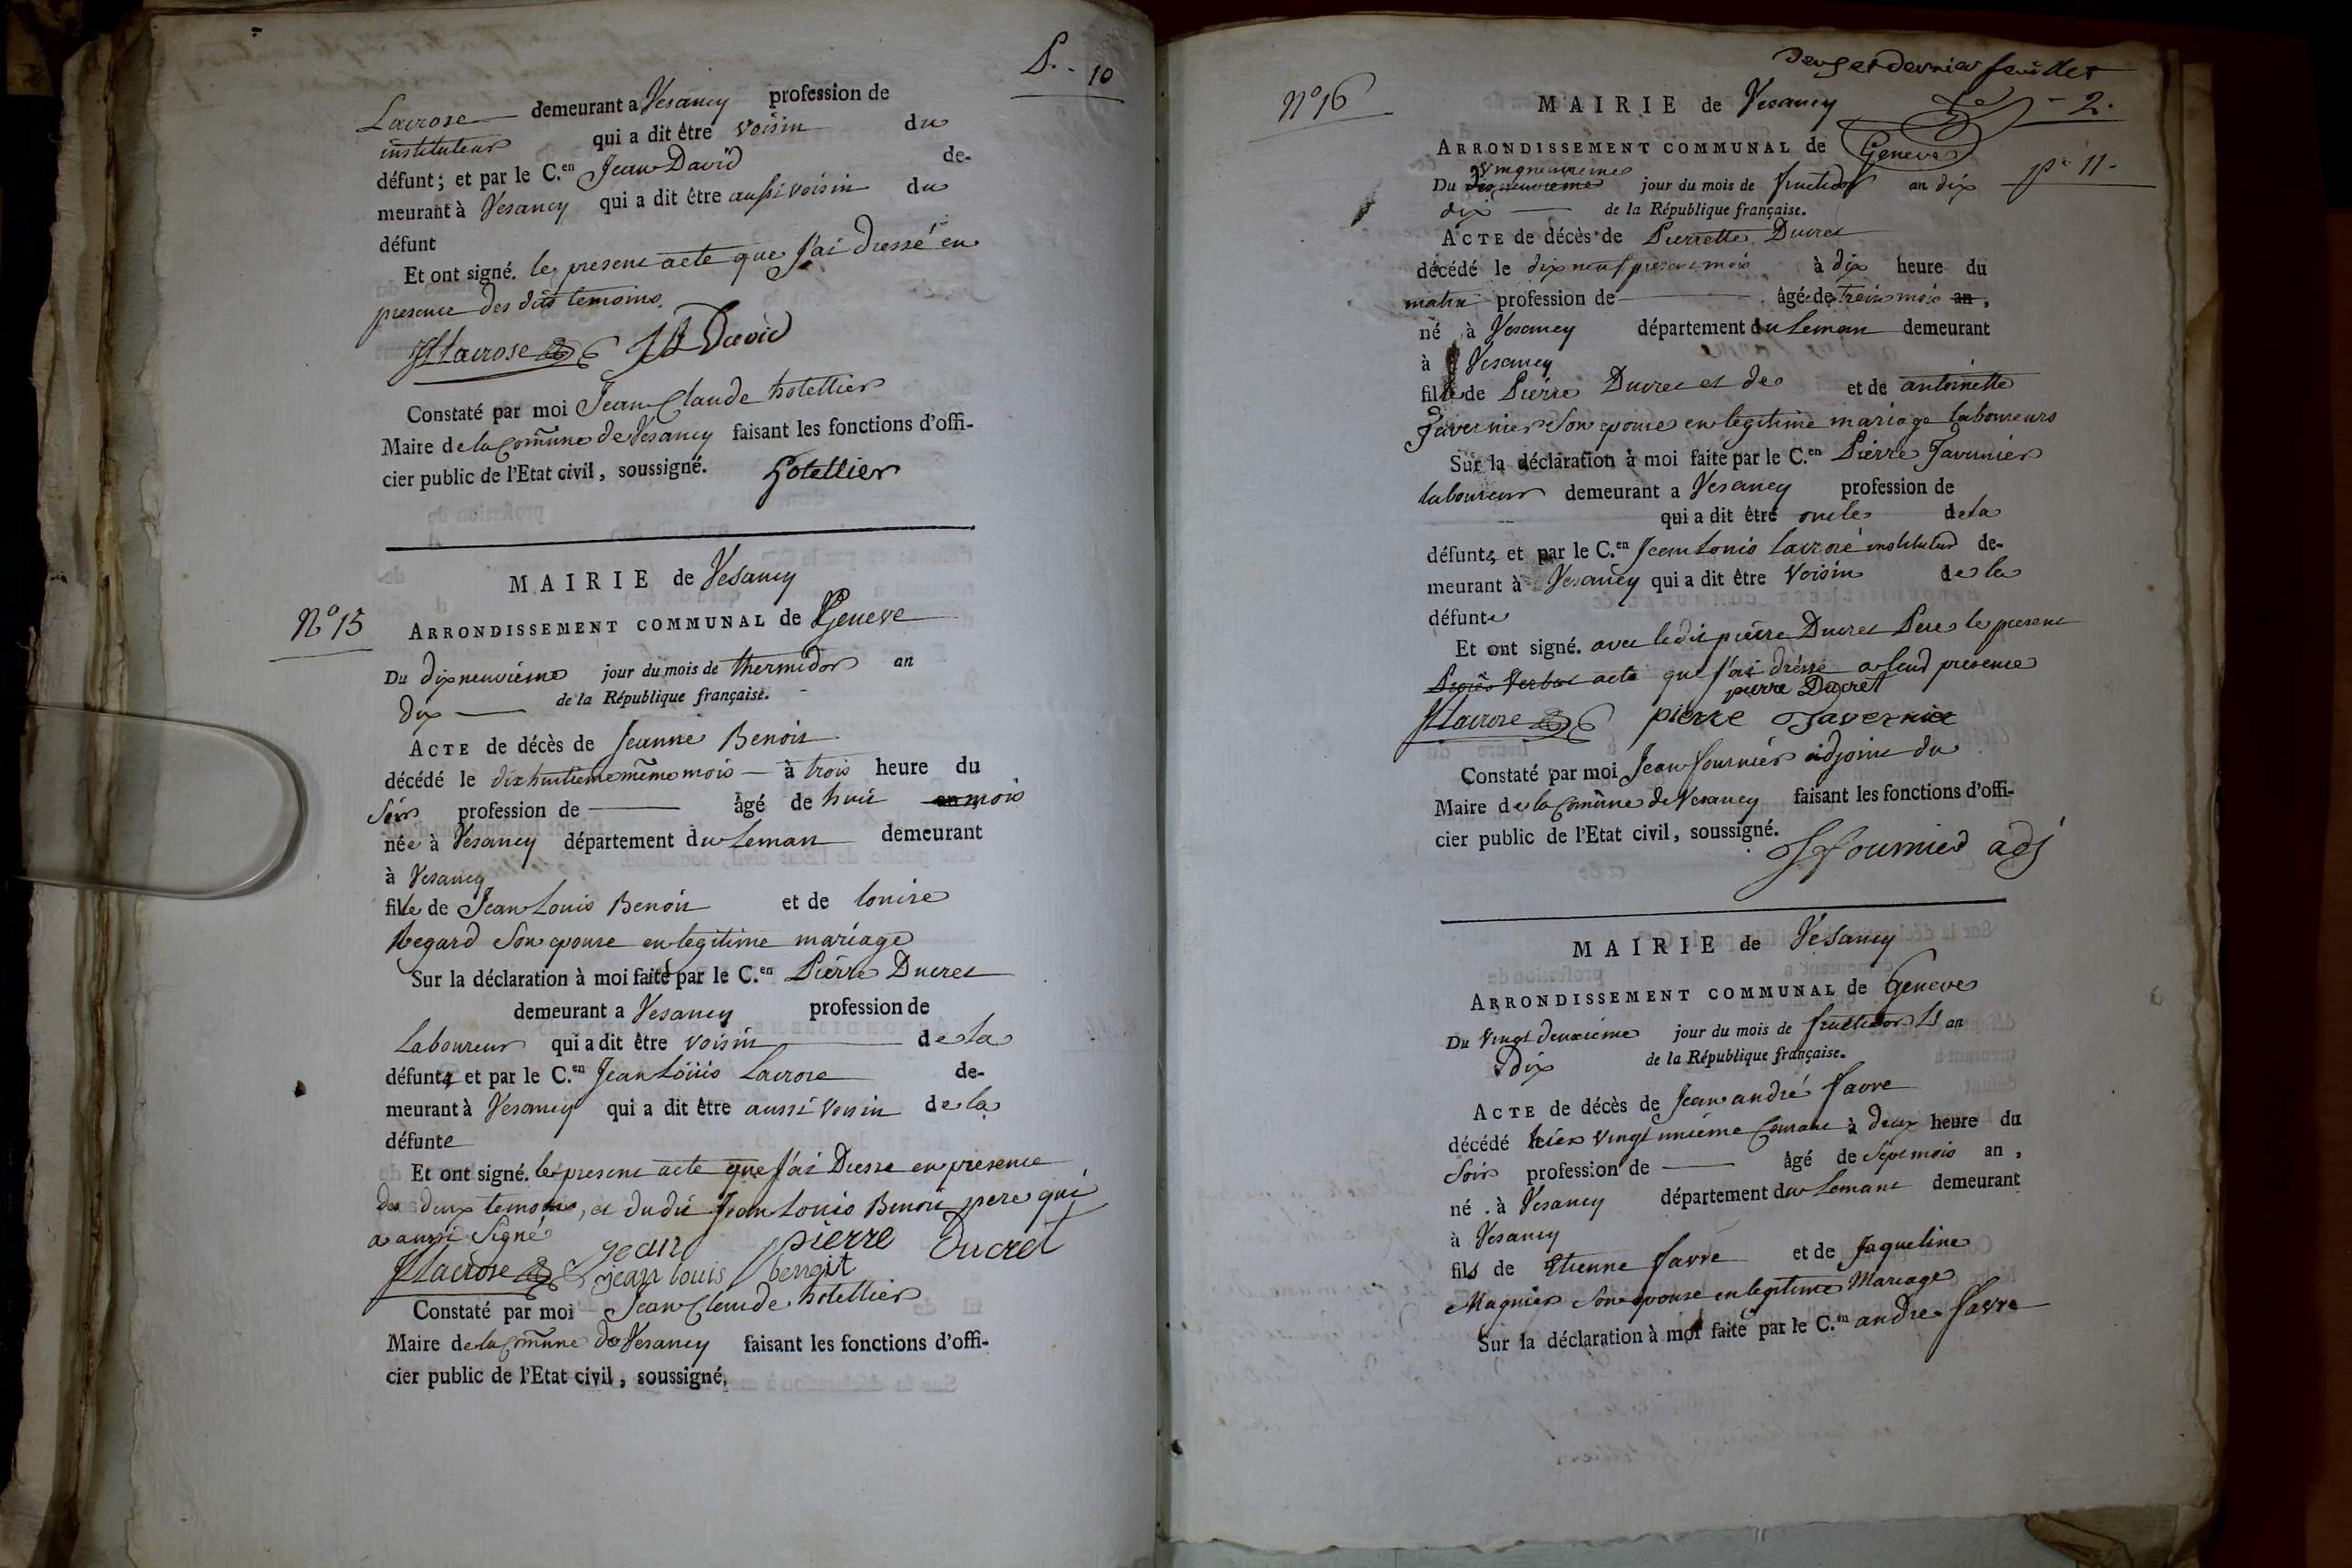 P. - 10
Lacrose demeurant a Vesancy profession de
instituteur qui a dit être voisin du
défunt; et par le C.en Jean David de-
meurant à Vesancy qui a dit être aussi voisin du
défunt
Et ont signé. le present acte que j'ai dressé en
presence des dits temoins.
JLLacrose JA David
Constaté par moi Jean Claude hotellier
Maire de la Comune de Vesancy faisant les fonctions d'offi-
cier public de l'Etat civil, soussigné. hotellier
MAIRIE de Vesancy
N° 15
ARRONDISSEMENT COMMUNAL de Geneve
Du dixneuvieme jour du mois de thermidor an
dix de la République française.
ACTE de décès de Jeanne Benoit
décédé le dix huitieme même mois à trois heure du
Soir profession de âgé de huit an mois
née à Vesancy département du Leman demeurant
à Vesancy
fille de Jean Louis Benoit et de louise
Regard Son epouse en legitime mariage
Sur la déclaration à moi faite par le C.en Pierre Ducret
demeurant a Vesancy profession de
Laboureur qui a dit être voisin de la
défunte et par le C.en Jean Louis Lacrose de-
meurant à Vesancy qui a dit être aussi voisin de la
défunte
Et ont signé. le present acte que j'ai Dressé en presence
des deux temoins, et du dit Jean Louis Benoit pere qui
a aussi Signé
JLLacrose jean pierre Ducret
jean louis benoit
Constaté par moi Jean Claude hotellier
Maire de la Comune de Vesancy faisant les fonctions d'offi-
cier public de l'Etat civil, soussigné.
Deux et dernier feuillet
N° 16
MAIRIE de Vesancy
- 2.
ARRONDISSEMENT COMMUNAL de Geneve
pe 11 -
Du dixneuvieme jour du mois de fructidor an dix
dix de la République française.
ACTE de décès de Pierrette Ducret
décédé le dix neuf present mois à dix heure du
matin profession de âgé de treize mois an,
né à Vesancy département du Leman demeurant
à Vesancy
fille de Pierre Ducret et de et de antoinette
Tavernier Son epouse en legitime mariage laboureurs
Sur la déclaration à moi faite par le C.en Pierre Tavernier
laboureur demeurant a Vesancy profession de
qui a dit être oncle de la
défunte et par le C.en Jean Louis Lacrose instituteur de-
meurant à Vesancy qui a dit être Voisin de la
défunte
Et ont signé. avec le dit pierre Ducret Pere le present
Procès Verbal acte que j'ai dréssé a leur presence
pierre Ducret
JLLacrose pierre Tavernier
Constaté par moi Jean fournier adjoint du
Maire de la Comune de Vesancy faisant les fonctions d'offi-
cier public de l'Etat civil, soussigné.
J fournier adj
MAIRIE de Vesancy
ARRONDISSEMENT COMMUNAL de Geneve
Du Vingt deuxieme jour du mois de fructidor L an
Dix de la République française.
ACTE de décès de Jean andré favre
décédé hier vingt unieme Courant à deux heure du
Soir profession de âgé de Sept mois an,
né à Vesancy département du Lemant demeurant
à Vesancy
fils de Etienne favre et de Jaqueline
Magnier Son epouse en legitime Mariage
Sur la déclaration à moi faite par le C.en andre favre